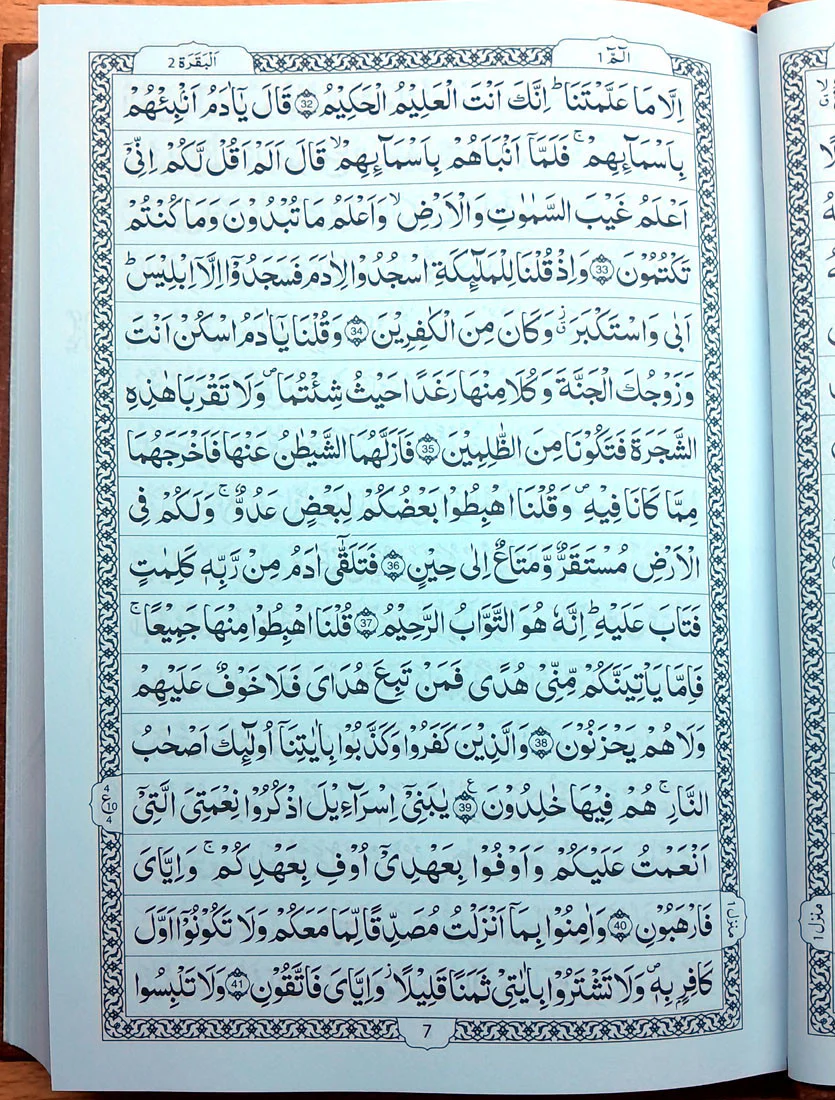 الٓمّٓ 1
اَلْبَقَرَة 2
اِلَّا مَا عَلَّمْتَنَا ؕ اِنَّكَ اَنْتَ الْعَلِيْمُ الْحَكِيْمُ 32 قَالَ يٰۤاٰدَمُ اَنْۢبِئْهُمْ
بِاَسْمَآئِهِمْ ۚ فَلَمَّاۤ اَنْۢبَاَهُمْ بِاَسْمَآئِهِمْ ۙ قَالَ اَلَمْ اَقُلْ لَّكُمْ اِنِّیْۤ
اَعْلَمُ غَيْبَ السَّمٰوٰتِ وَالْاَرْضِ ۙ وَاَعْلَمُ مَا تُبْدُوْنَ وَمَا كُنْتُمْ
تَكْتُمُوْنَ 33 وَاِذْ قُلْنَا لِلْمَلٰٓئِكَةِ اسْجُدُوْا لِاٰدَمَ فَسَجَدُوْۤا اِلَّاۤ اِبْلِيْسَ ؕ
اَبٰی وَاسْتَكْبَرَ ٭ۗ وَكَانَ مِنَ الْكٰفِرِيْنَ 34 وَقُلْنَا يٰۤاٰدَمُ اسْكُنْ اَنْتَ
وَزَوْجُكَ الْجَنَّةَ وَكُلَا مِنْهَا رَغَدًا حَيْثُ شِئْتُمَا ۪ وَلَا تَقْرَبَا هٰذِهِ
الشَّجَرَةَ فَتَكُوْنَا مِنَ الظّٰلِمِيْنَ 35 فَاَزَلَّهُمَا الشَّيْطٰنُ عَنْهَا فَاَخْرَجَهُمَا
مِمَّا كَانَا فِيْهِ ۪ وَقُلْنَا اهْبِطُوْا بَعْضُكُمْ لِبَعْضٍ عَدُوٌّ ۚ وَلَكُمْ فِی
الْاَرْضِ مُسْتَقَرٌّ وَّمَتَاعٌ اِلٰی حِيْنٍ 36 فَتَلَقّٰۤی اٰدَمُ مِنْ رَّبِّهٖ كَلِمٰتٍ
فَتَابَ عَلَيْهِ ؕ اِنَّهٗ هُوَ التَّوَّابُ الرَّحِيْمُ 37 قُلْنَا اهْبِطُوْا مِنْهَا جَمِيْعًا ۚ
فَاِمَّا يَاْتِيَنَّكُمْ مِّنِّیْ هُدًی فَمَنْ تَبِعَ هُدَایَ فَلَا خَوْفٌ عَلَيْهِمْ
وَلَا هُمْ يَحْزَنُوْنَ 38 وَالَّذِيْنَ كَفَرُوْا وَكَذَّبُوْا بِاٰيٰتِنَاۤ اُولٰٓئِكَ اَصْحٰبُ
النَّارِ ۚ هُمْ فِيْهَا خٰلِدُوْنَ 39 يٰبَنِیْۤ اِسْرَآءِيْلَ اذْكُرُوْا نِعْمَتِیَ الَّتِیْۤ
4
ع
10
4
اَنْعَمْتُ عَلَيْكُمْ وَاَوْفُوْا بِعَهْدِیْۤ اُوْفِ بِعَهْدِكُمْ ۚ وَاِيَّایَ
فَارْهَبُوْنِ 40 وَاٰمِنُوْا بِمَاۤ اَنْزَلْتُ مُصَدِّقًا لِّمَا مَعَكُمْ وَلَا تَكُوْنُوْۤا اَوَّلَ
منزل 1
كَافِرٍۭ بِهٖ ۪ وَلَا تَشْتَرُوْا بِاٰيٰتِیْ ثَمَنًا قَلِيْلًا ؗ وَاِيَّایَ فَاتَّقُوْنِ 41 وَلَا تَلْبِسُوا
7
منزل 1